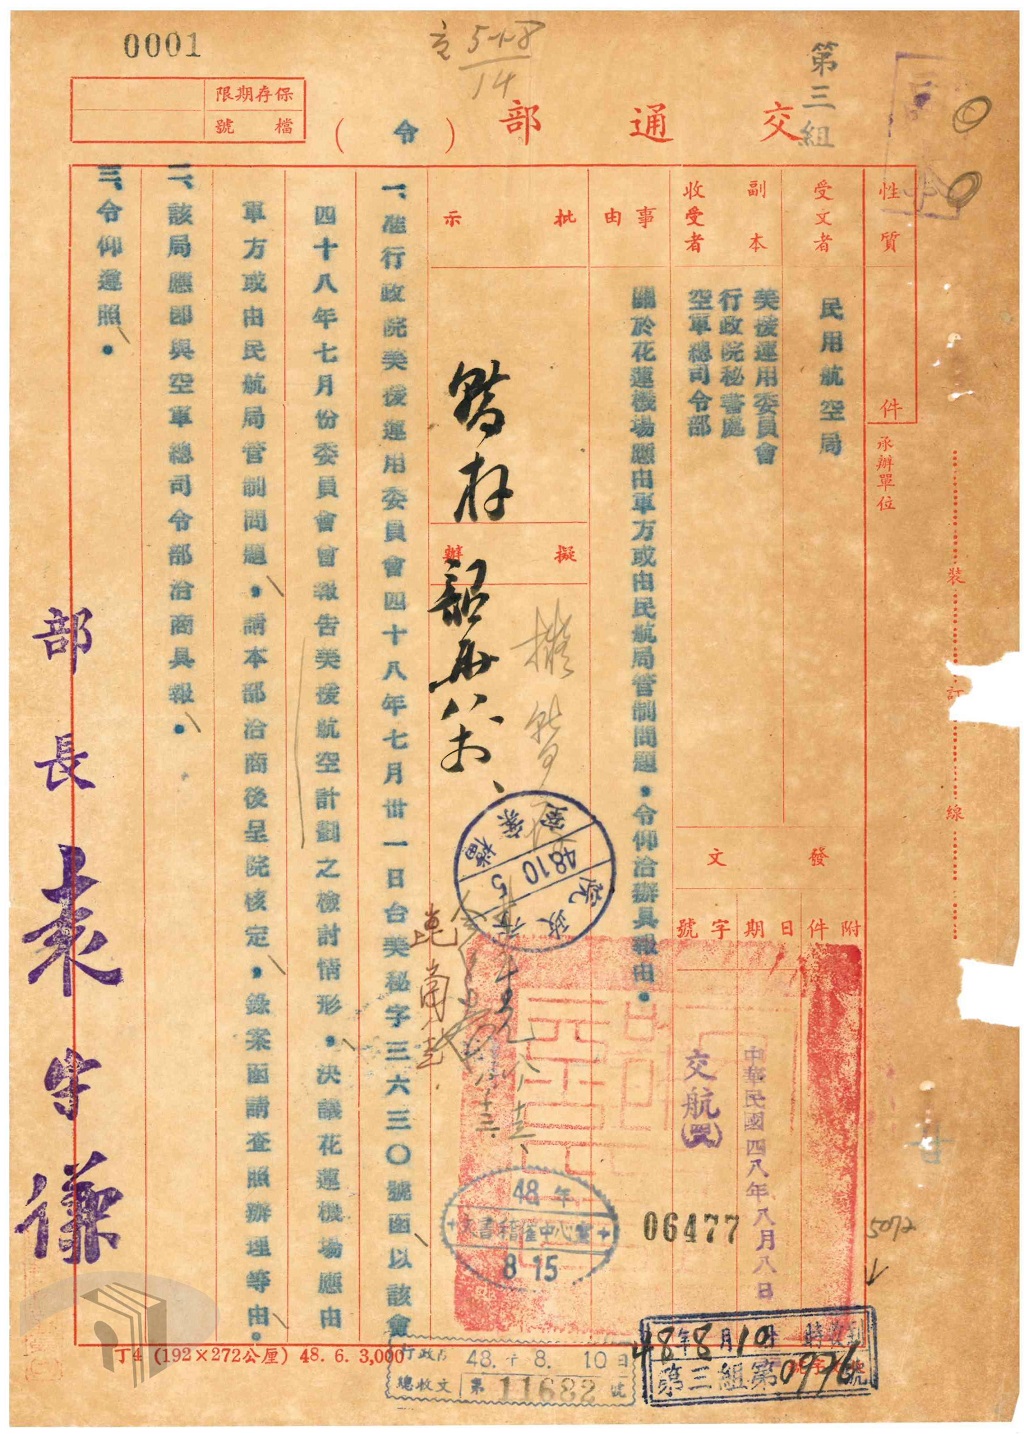 0001
518/14
第三組
保存期限
檔號
交通部(令)
性質
件
受文者
民用航空局
副本收受者
美援運用委員會
行政院秘書處
空軍總司令部
承辦單位
裝
訂
線
發文
附件
日期
字號
中華民國四八年八月八日
交航
06477
事由
關於花蓮機場應由軍方或由民航局管制問題,令仰洽辦具報由。
批示
擬辦
暫存
擬暫存
一、准行政院美援運用委員會四十八年七月卅一日台美秘字三六三〇號函以該會
四十八年七月份委員會會報告美援航空計劃之檢討情形,決議花蓮機場應由
軍方或由民航局管制問題,請本部洽商後呈院核定,錄案函請查照辦理等由。
二、該局應即與空軍總司令部洽商具報。
三、令仰遵照。
部長袁守謙
行政院檔案室
48 10 5
48年
8 15
5072
丁4 (192×272公厘) 48. 6. 3,000
48. 8. 10日
總收文 第11682號
48年8月10日 時
第三組第0976號